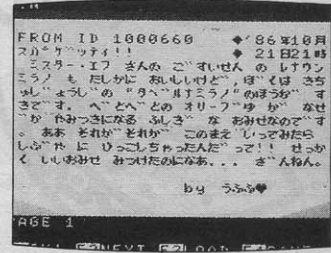 FROM ID 1000660 ◆'86年10月
スパゲッティ!! ◆ 21日21時
ミスター・エフ さんの ごすいせん の レナウン
ミラノ も たしかに おいしいけど、ぼくは きち
じょうじ の "タベルナミラノ"のほうが す
きです。 べとべとの オリーブゆ が なぜ
か やみつきになる ふしぎな おみせなのです
。 ああ それが それが このまえ いってみたら
しぶや に ひっこしちゃったんだって!! せっか
く いいおみせ みつけたのになあ... ざんねん。
by うふふ♥
AGE 1
NEXT LOAD